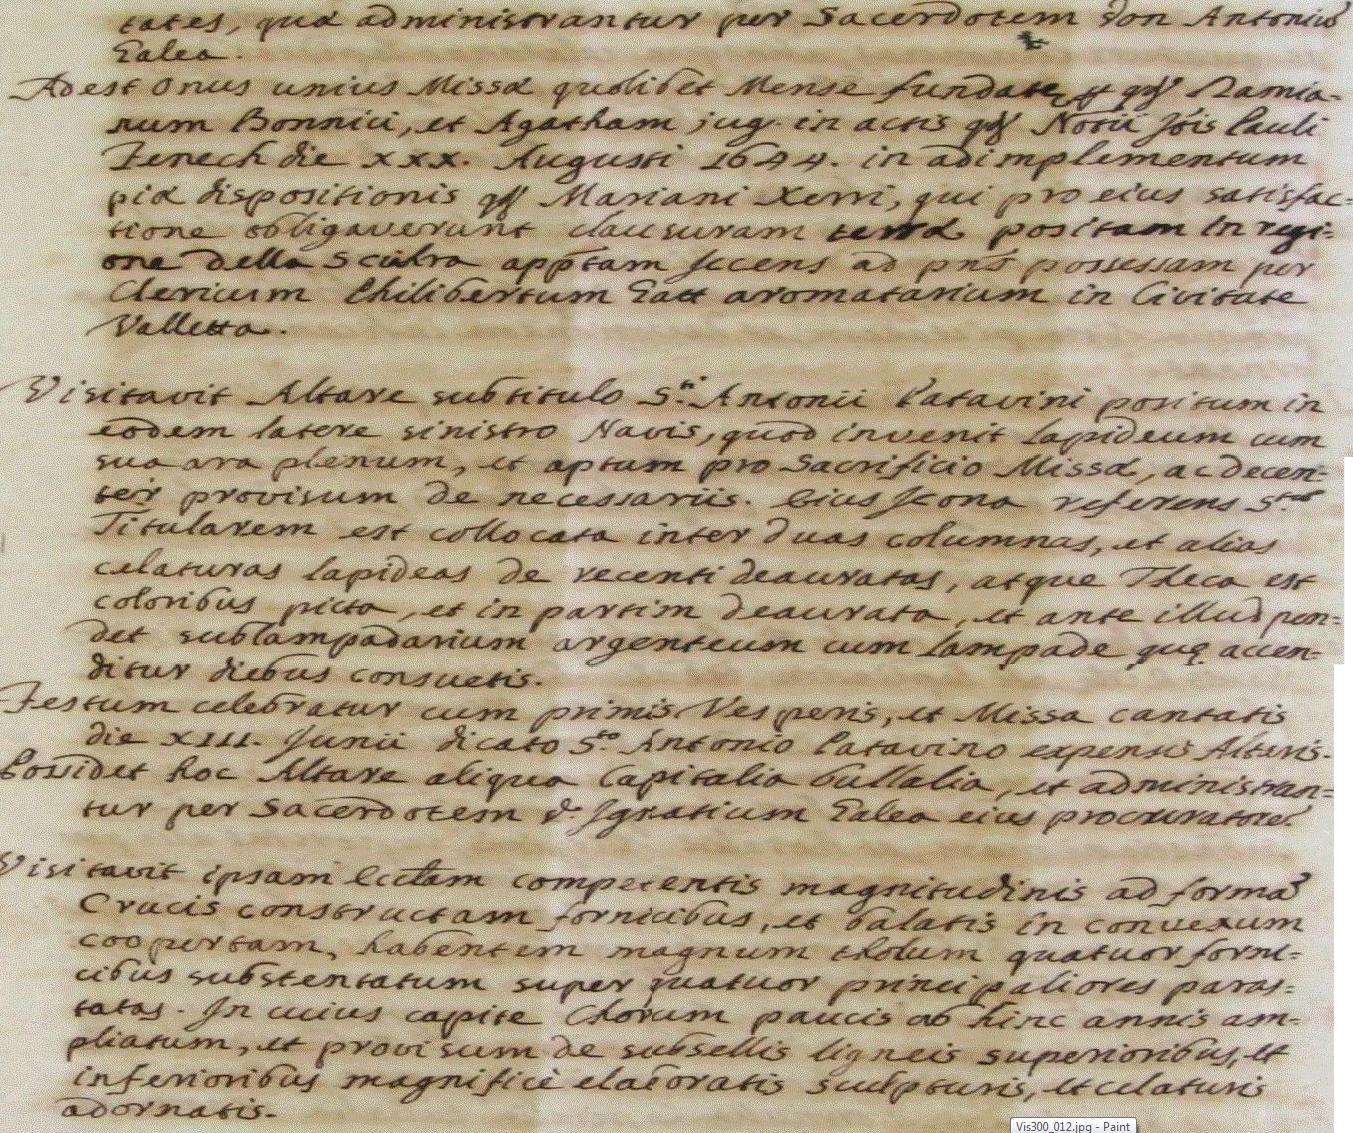 tates, quæ administrantur per Sacerdotem Don Antoniū
Galea.
Adest Onus unius Missæ quolibet Mense fundatæ Damia-
num Bonnici, et Agatham jug. in actis Notii Jois Pauli
Fenech die xxx. Augusti 1644. in adimplementum
piæ dispositionis Mariani Xerri, qui pro eius satisfac-
tione obligaverunt clausuram terræ positam in regi-
one della Scieħra apptam Iccens ad pns possessam per
Clericum Philibertum Gatt aromatarium in Civitate
Valletta.
Visitavit Altare subtitulo S.ti Antonii Patavini positum in
eodem latere sinistro Navis, quod invenit lapideum cum
sua ara plenum, et aptum pro Sacrificio Missæ, ac decen-
ter provisum de necessariis. Eius Icona referens S.tum
Titularem est collocata inter duas columnas, et alias
celaturas lapideas de recenti deauratas, atque Theca est
coloribus picta, et in partim deaurata, et ante illud pen-
det sublampadarium argenteum cum lampade quę accen-
ditur diebus consuetis.
Festum celebratur cum primis Vesperis, et Missa cantatis
die XIII. Junii dicato S.to Antonio Patavino expensis Altaris.
Possidet hoc Altare aliqua Capitalia bullalia, et administran-
tur per Sacerdotem D. Ignatium Galea eius procuratorē.
Visitavit ipsam Ecclam competentis magnitudinis ad formā
Crucis constructam fornicibus, et balatis in convexum
coopertam, habentem magnum tholum quatuor forni-
cibus substentatum super quatuor principaliores paras-
tatas. In cuius capite Chorum paucis ab hinc annis am-
pliatum, et provisum de subsellis ligneis superioribus, et
inferioribus magnificè elaboratis sculpturis, et celaturis
adornatis.
Vis300_012.jpg - Paint